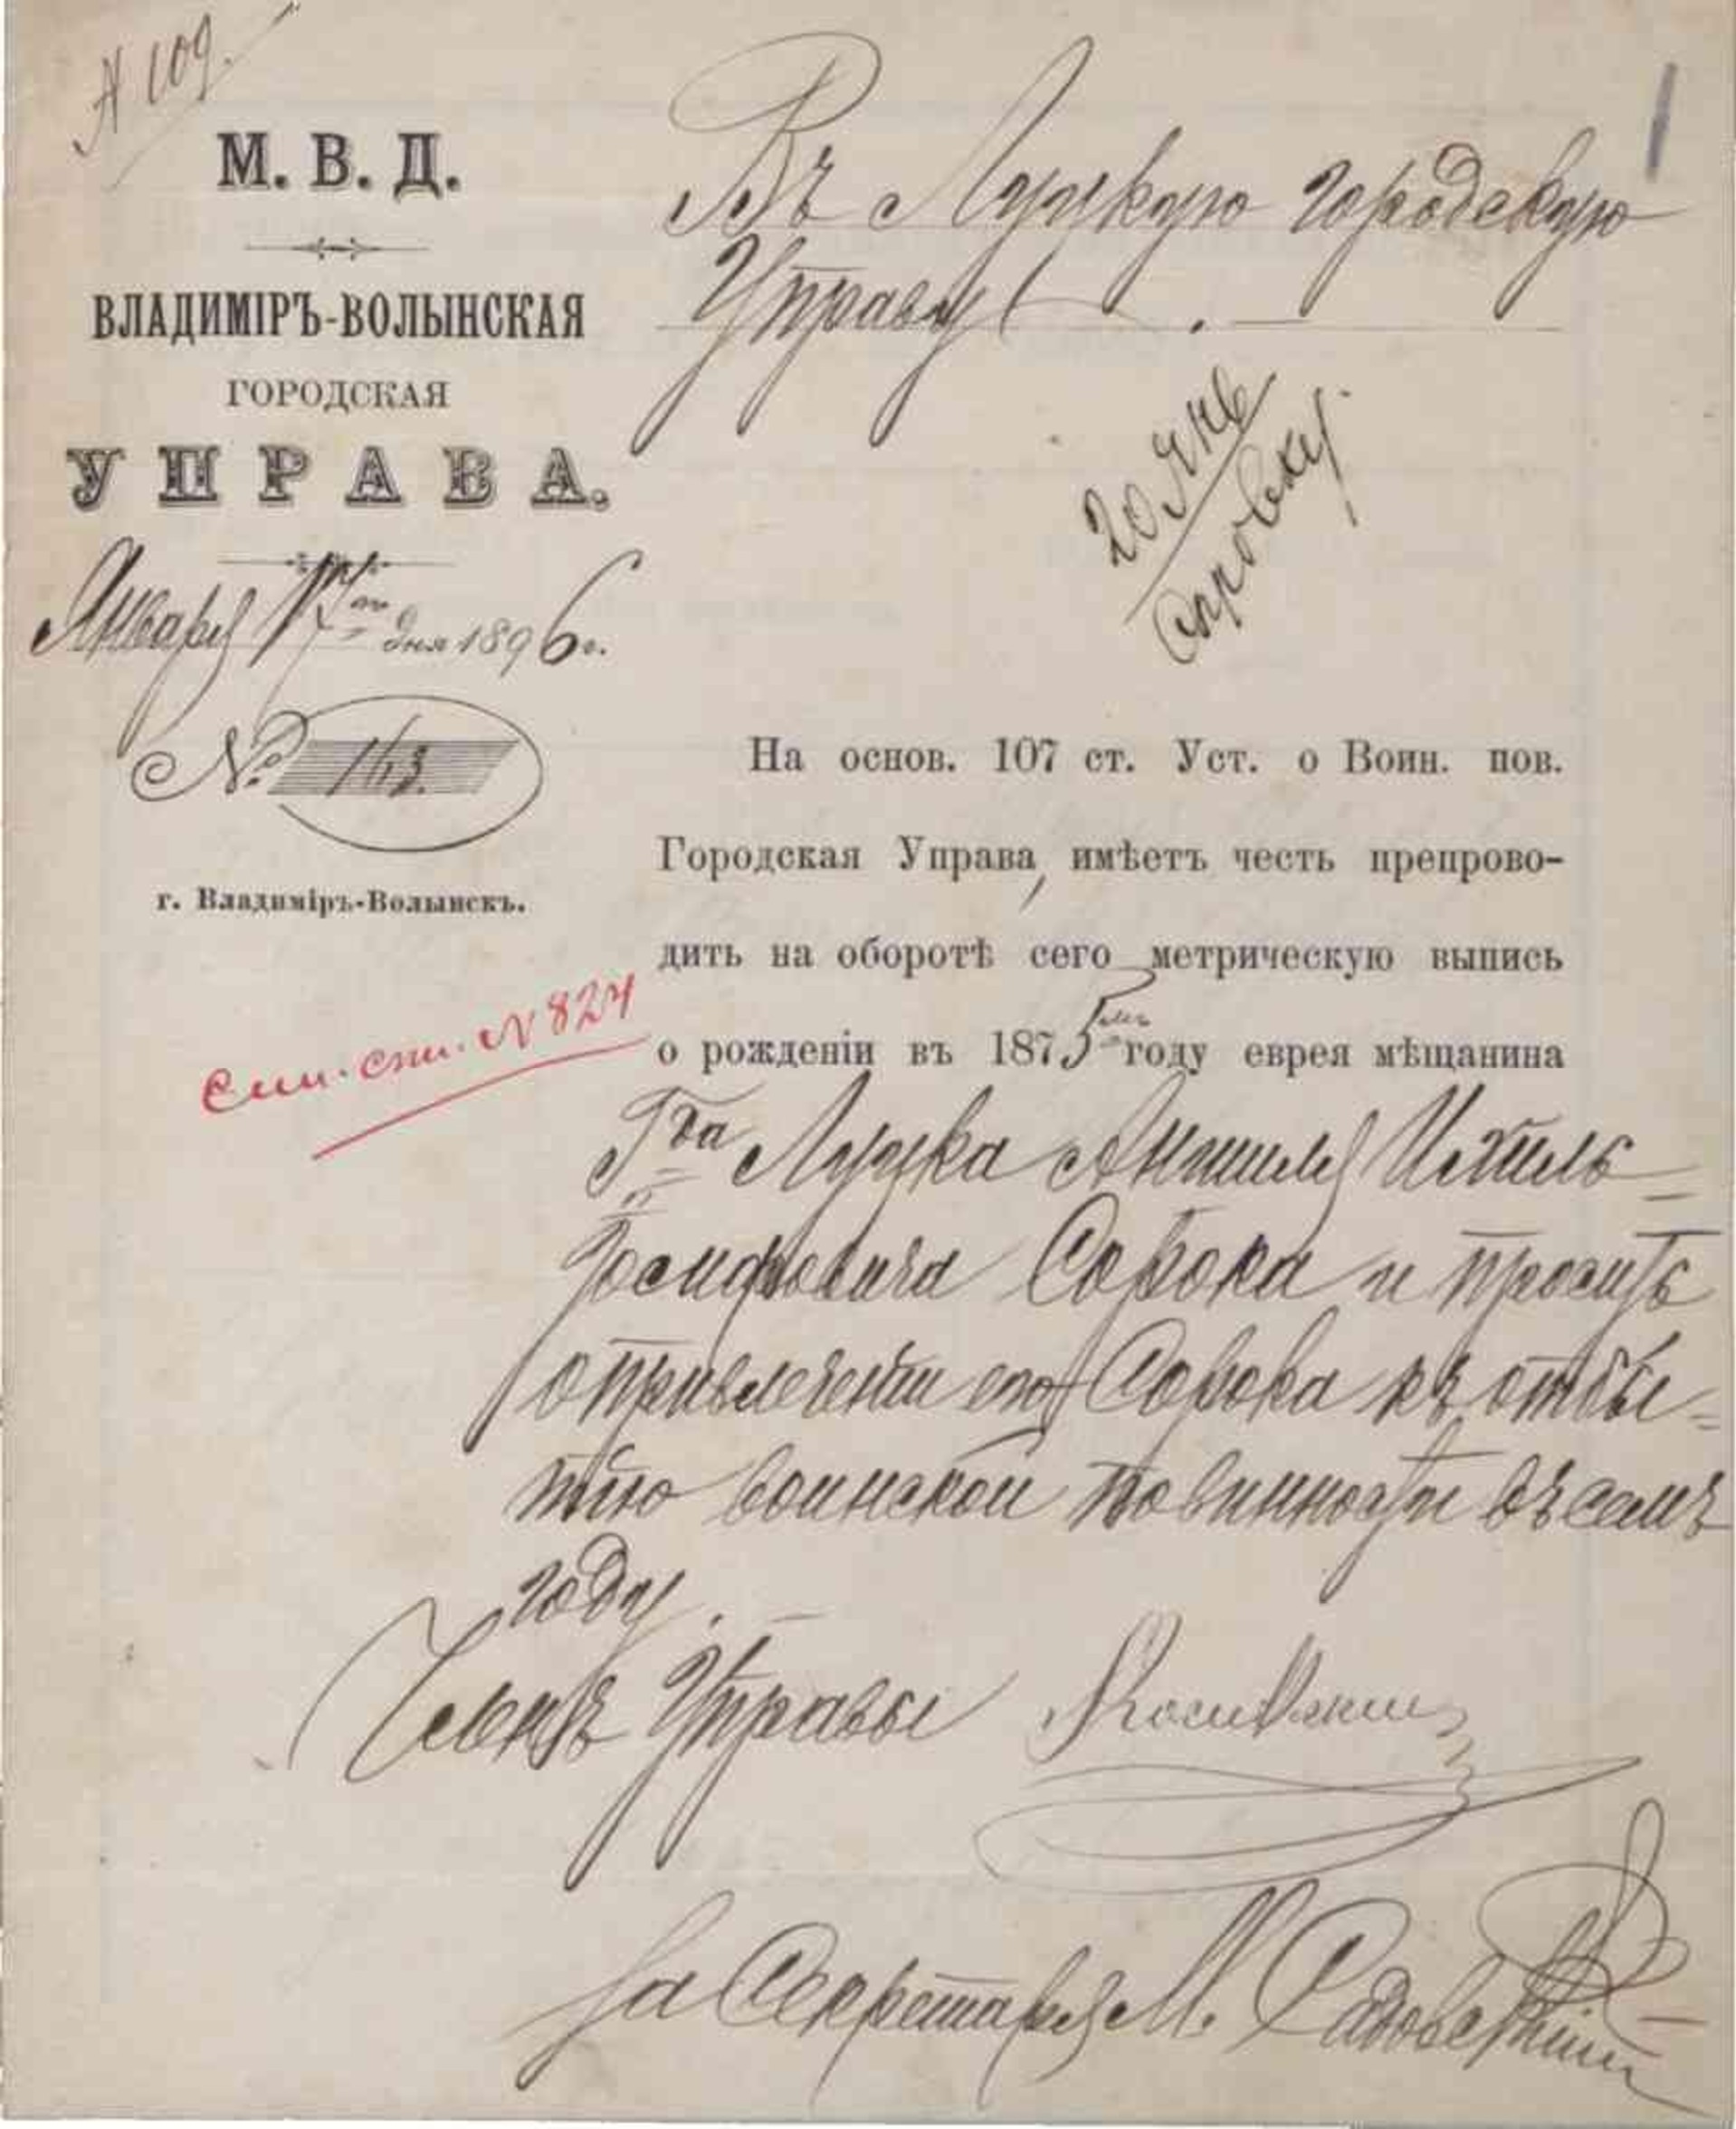 N 109.
1
М. В. Д.
ВЛАДИМІРЪ-ВОЛЫНСКАЯ
ГОРОДСКАЯ
УПРАВА.
Января 17го дня 1896 г.
№ 163.
г. Владиміръ-Волынскъ.
Въ Луцкую городскую
Управу.
20 Янв
справку
На основ. 107 ст. Уст. о Воин. пов.
Городская Управа, имѣетъ честь препрово-
дить на оборотѣ сего метрическую выпись
о рожденіи въ 1875мъ году еврея мѣщанина
См. ст. N 824
Гда Луцка Аншиля Ихиль-
Іосифовича Сорока и проситъ
о привлеченіи его Сорока къ отбы-
тію воинской повинности въ семъ
году.
Членъ Управы
За Секретаря М. Садовскій